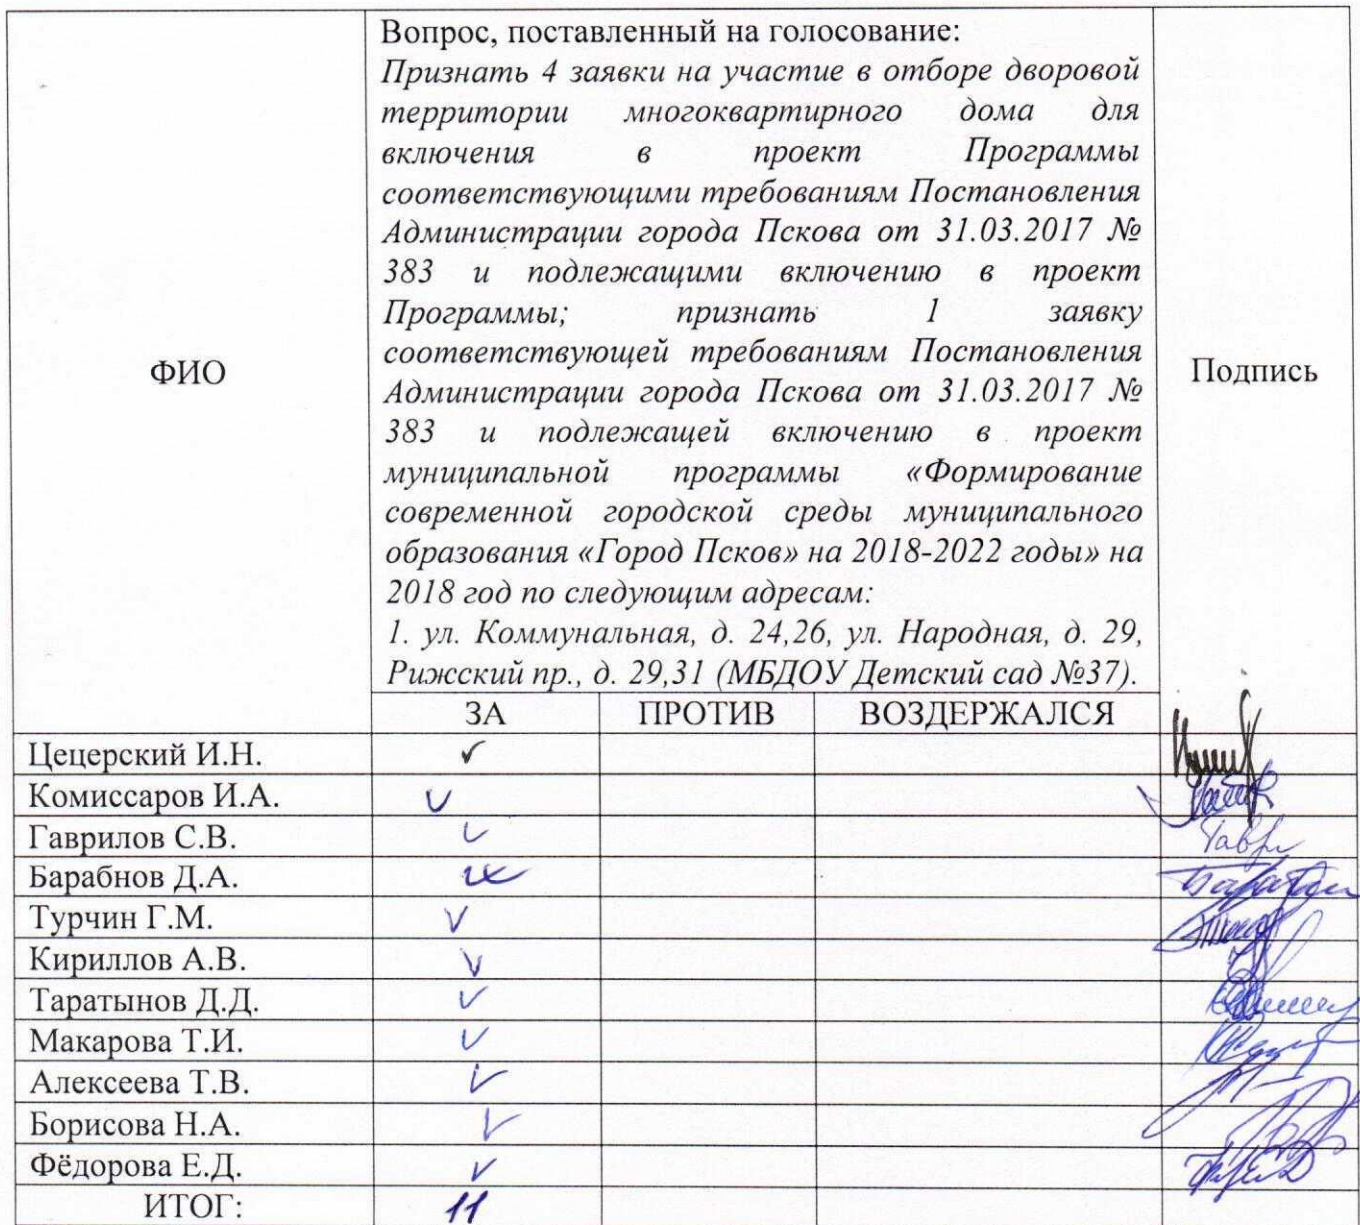 Вопрос, поставленный на голосование:
Признать 4 заявки на участие в отборе дворовой
территории многоквартирного дома для
включения в проект Программы
соответствующими требованиям Постановления
Администрации города Пскова от 31.03.2017 №
383 и подлежащими включению в проект
Программы; признать 1 заявку
соответствующей требованиям Постановления
Администрации города Пскова от 31.03.2017 №
383 и подлежащей включению в проект
муниципальной программы «Формирование
современной городской среды муниципального
образования «Город Псков» на 2018-2022 годы» на
2018 год по следующим адресам:
1. ул. Коммунальная, д. 24,26, ул. Народная, д. 29,
Рижский пр., д. 29,31 (МБДОУ Детский сад №37).
ФИО
Подпись
ЗА ПРОТИВ ВОЗДЕРЖАЛСЯ
Цецерский И.Н.
Комиссаров И.А.
Гаврилов С.В.
Барабнов Д.А.
Турчин Г.М.
Кириллов А.В.
Таратынов Д.Д.
Макарова Т.И.
Алексеева Т.В.
Борисова Н.А.
Фёдорова Е.Д.
ИТОГ: 11